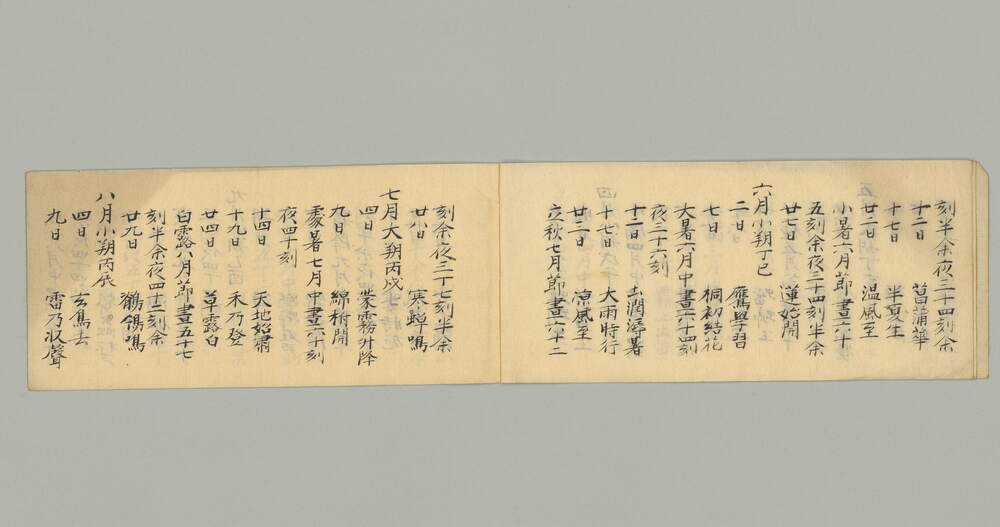 刻半余夜三十四刻余
十二日 菖蒲華
十七日 半夏生
廿二日 温風至
小暑六月節晝六十
五刻余夜三十四刻半余
廿七日 蓮始開
六月小朔丁巳
二日 鷹學習
七日 桐初結花
大暑六月中晝六十四刻
夜三十六刻
十二日 土潤溽暑
十七日 大雨時行
廿二日 涼風至
立秋七月節晝六十二
刻余夜三十七刻半余
廿八日 寒蟬鳴
七月大朔丙戌
四日 蒙霧升降
九日 綿柎開
處暑七月中晝六十刻
夜四十刻
十四日 天地始肅
十九日 禾乃登
廿四日 草露白
白露八月節晝五十七
刻半余夜四十二刻余
廿九日 鶺鴒鳴
八月小朔丙辰
四日 玄鳥去
九日 雷乃收聲